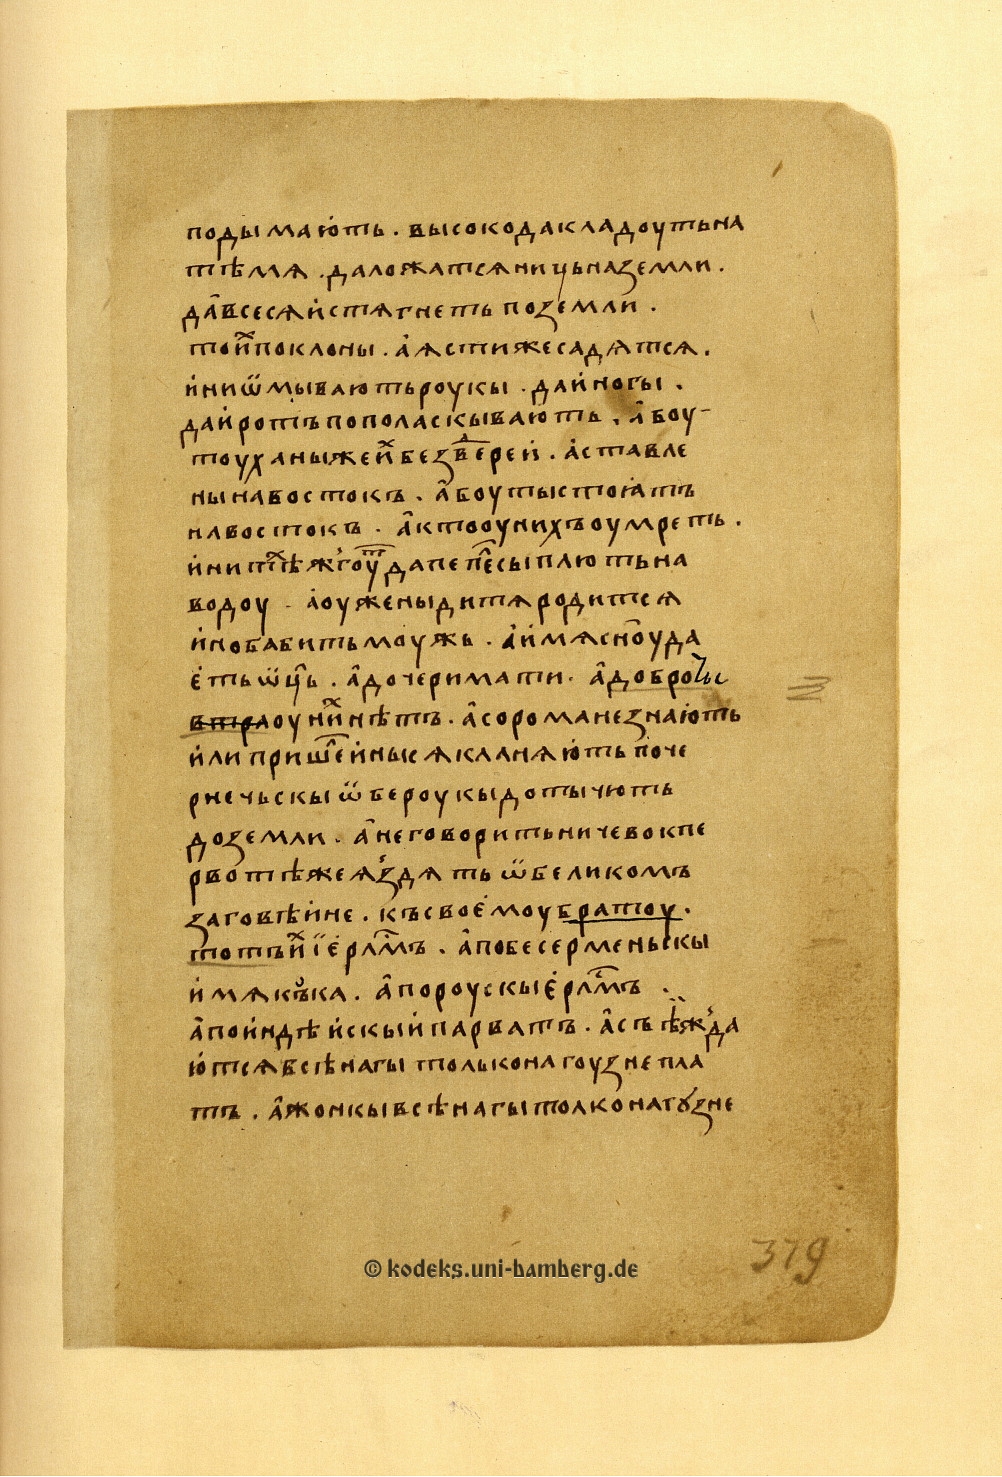 подымаю́ть. высокодакладоутьна
тѣмѧ. даложатсѧницьназемли.
даⷶ҇всесѧи҆стѧгнеть поземли.
тои҆ⷯпоклоны. а҆ѧстижесадѧтсѧ.
и҆ниѿмываютьроукы. даи҆ногы.
даи҆ротъпополаскываю҆ть. а҆боу-
тоуханыжеи҆ⷯбезⷣверей. а҆ставле
нынавостокъ. а҆боутыстоꙗтъ
навостокъ. а҆ктооунихъоумреть.
и҆нитѣⷯжгоуⷮдапепеⷧ҇сыплютьна
водоу. а҆оуженыдитѧродитсѧ
и҆нобабитьмоужь. а҆и҆мѧсн҃оуда
е҆тьѿц҃ь. а҆дочеримати. а҆доброты
втраоуни҆ⷯнѣтъ. а҆сороманезнаю҆ть
и҆липрише҆ⷧи҆ныисѧкланѧю҆тьпоче
рнечьскы ѿбероукыдотычють
доземли. а҆неговоритьничевокпе
рвотѣжеꙗⷥздѧть ѿвеликомъ
заговѣи҆не. късвое҆моубратоу.
тотъи҆ⷯі҆е҆рлⷭ҇мъ. а҆побесерменьскы
и҆мѧкъ́ка. а҆пороускые҆рлⷭ҇мъ.
а҆пои҆ндѣи҆скыи҆парватъ. а҆съѣжⷤда
ю҆тсѧвсѣнагы толькона гоузнепла
тъ. а҆жонкывсѣнагытолконагꙋзне
© kodeks.uni-bamberg.de
379